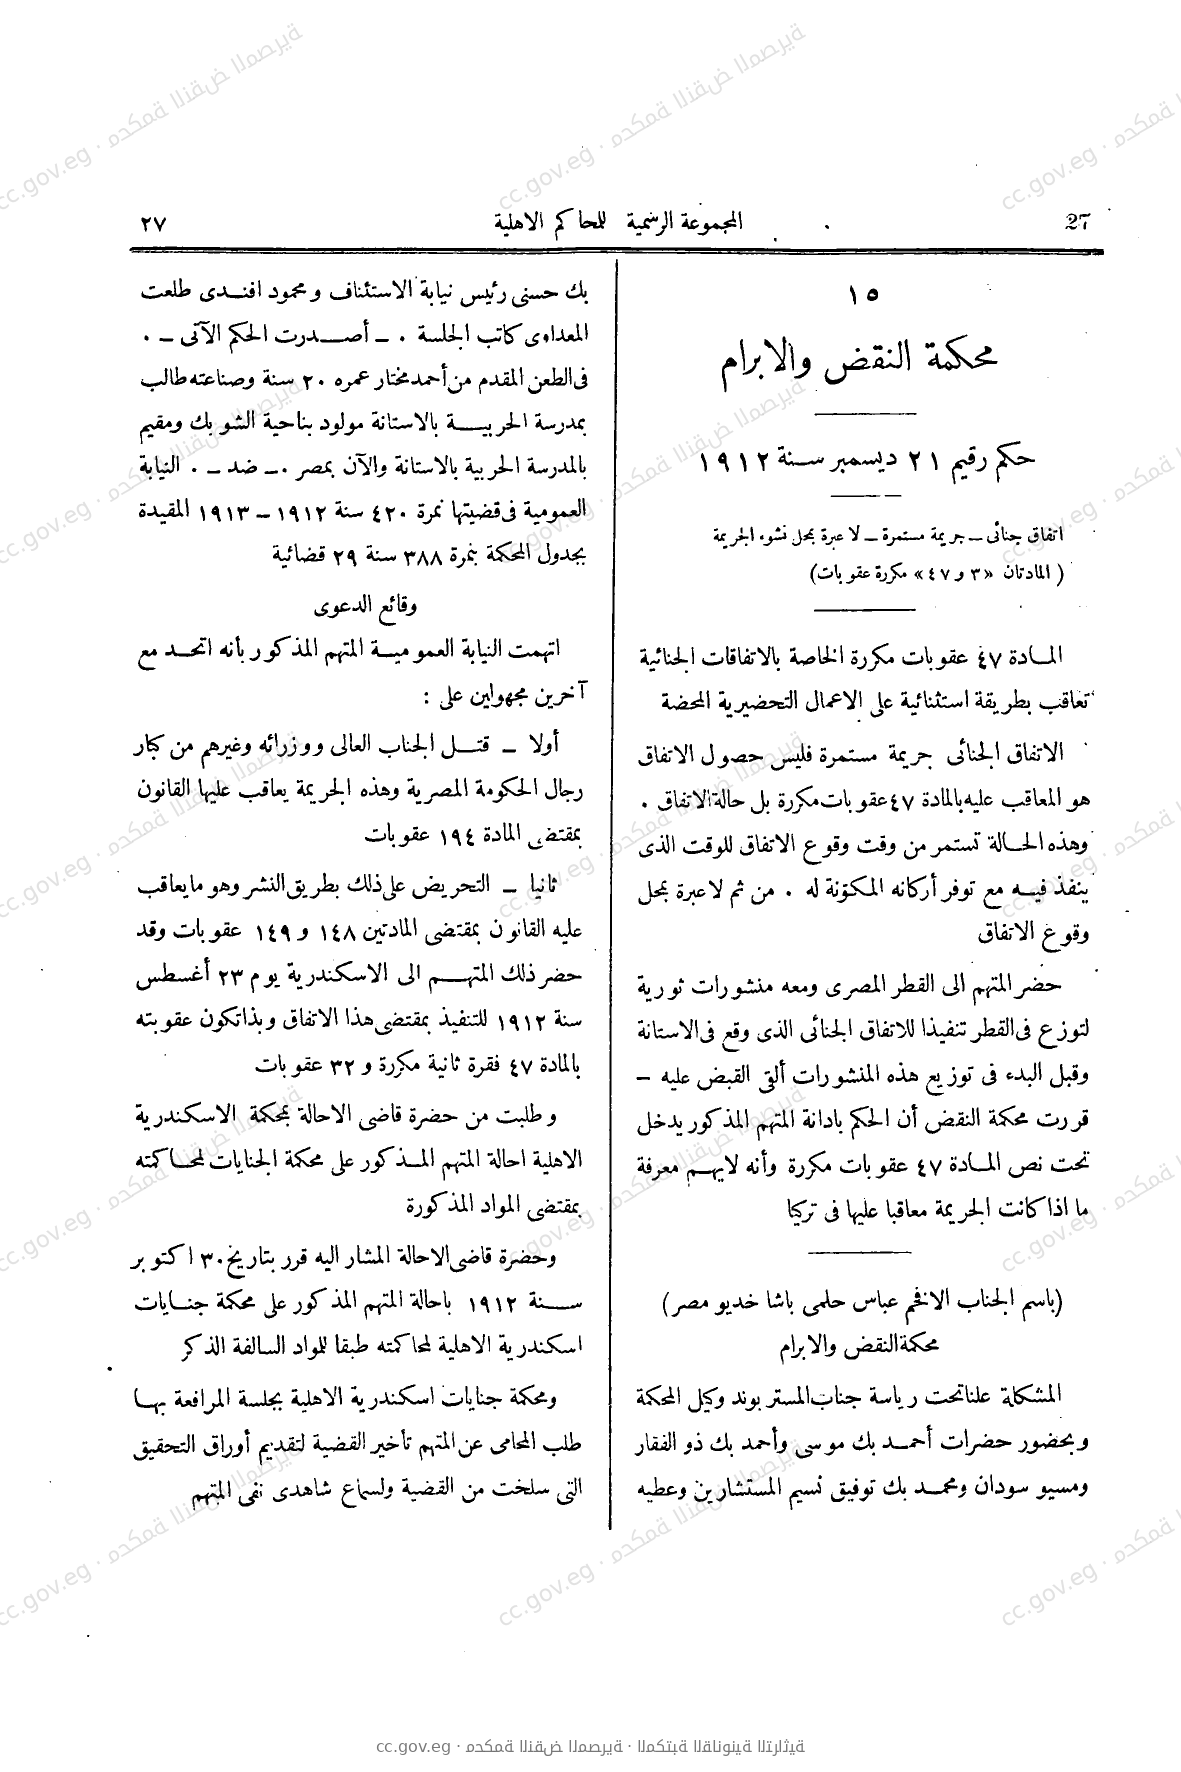 27
المجموعة الرسمية للمحاكم الاهلية
٢٧
١٥
محكمة النقض والابرام
حكم رقيم ٢١ ديسمبر سنة ١٩١٢
اتفاق جنائى – جريمة مستمرة – لا عبرة بمحل نشوء الجريمة
( المادتان «٣ و ٤٧» مكررة عقوبات)
المادة ٤٧ عقوبات مكررة الخاصة بالاتفاقات الجنائية
تعاقب بطريقة استثنائية على الاعمال التحضيرية المحضة
الاتفاق الجنائى جريمة مستمرة فليس حصول الاتفاق
هو المعاقب عليه بالمادة ٤٧ عقوبات مكررة بل حالة الاتفاق .
وهذه الحالة تستمر من وقت وقوع الاتفاق للوقت الذى
ينفذ فيه مع توفر أركانه المكوّنة له . من ثم لا عبرة بمحل
وقوع الاتفاق
حضر المتهم الى القطر المصرى ومعه منشورات ثورية
لتوزع فى القطر تنفيذا للاتفاق الجنائى الذى وقع فى الاستانة
وقبل البدء فى توزيع هذه المنشورات ألقى القبض عليه –
قررت محكمة النقض أن الحكم بادانة المتهم المذكور يدخل
تحت نص المادة ٤٧ عقوبات مكررة وأنه لايهم معرفة
ما اذا كانت الجريمة معاقبا عليها فى تركيا
(باسم الجناب الافخم عباس حلمى باشا خديو مصر)
محكمة النقض والابرام
المشكلة علنا تحت رياسة جناب المستر بوند وكيل المحكمة
وبحضور حضرات أحمد بك موسى وأحمد بك ذو الفقار
ومسيو سودان ومحمد بك توفيق نسيم المستشارين وعطيه
بك حسنى رئيس نيابة الاستئناف ومحمود افندى طلعت
المعداوى كاتب الجلسة . – أصدرت الحكم الآتى – .
فى الطعن المقدم من أحمد مختار عمره ٢٠ سنة وصناعته طالب
بمدرسة الحربية بالاستانة مولود بناحية الشوبك ومقيم
بالمدرسة الحربية بالاستانة والآن بمصر .– ضد – . النيابة
العمومية فى قضيتها نمرة ٤٢٠ سنة ١٩١٢ – ١٩١٣ المقيدة
بجدول المحكمة بنمرة ٣٨٨ سنة ٢٩ قضائية
وقائع الدعوى
اتهمت النيابة العمومية المتهم المذكور بأنه اتحد مع
آخرين مجهولين على :
أولا – قتل الجناب العالى ووزرائه وغيرهم من كبار
رجال الحكومة المصرية وهذه الجريمة يعاقب عليها القانون
بمقتضى المادة ١٩٤ عقوبات
ثانيا – التحريض على ذلك بطريق النشر وهو ما يعاقب
عليه القانون بمقتضى المادتين ١٤٨ و ١٤٩ عقوبات وقد
حضر ذلك المتهم الى الاسكندرية يوم ٢٣ أغسطس
سنة ١٩١٢ للتنفيذ بمقتضى هذا الاتفاق وبذا تكون عقوبته
بالمادة ٤٧ فقرة ثانية مكررة و ٣٢ عقوبات
وطلبت من حضرة قاضى الاحالة بمحكمة الاسكندرية
الاهلية احالة المتهم المذكور على محكمة الجنايات لمحاكمته
بمقتضى المواد المذكورة
وحضرة قاضى الاحالة المشار اليه قرر بتاريخ ٣٠ اكتوبر
سنة ١٩١٢ باحالة المتهم المذكور على محكمة جنايات
اسكندرية الاهلية لمحاكمته طبقا للمواد السالفة الذكر
ومحكمة جنايات اسكندرية الاهلية بجلسة المرافعة بها
طلب المحامى عن المتهم تأخير القضية لتقديم أوراق التحقيق
التى سلخت من القضية ولسماع شاهدى نفى المتهم
cc.gov.eg · محكمة النقض المصرية · المكتبة القانونية التراثية